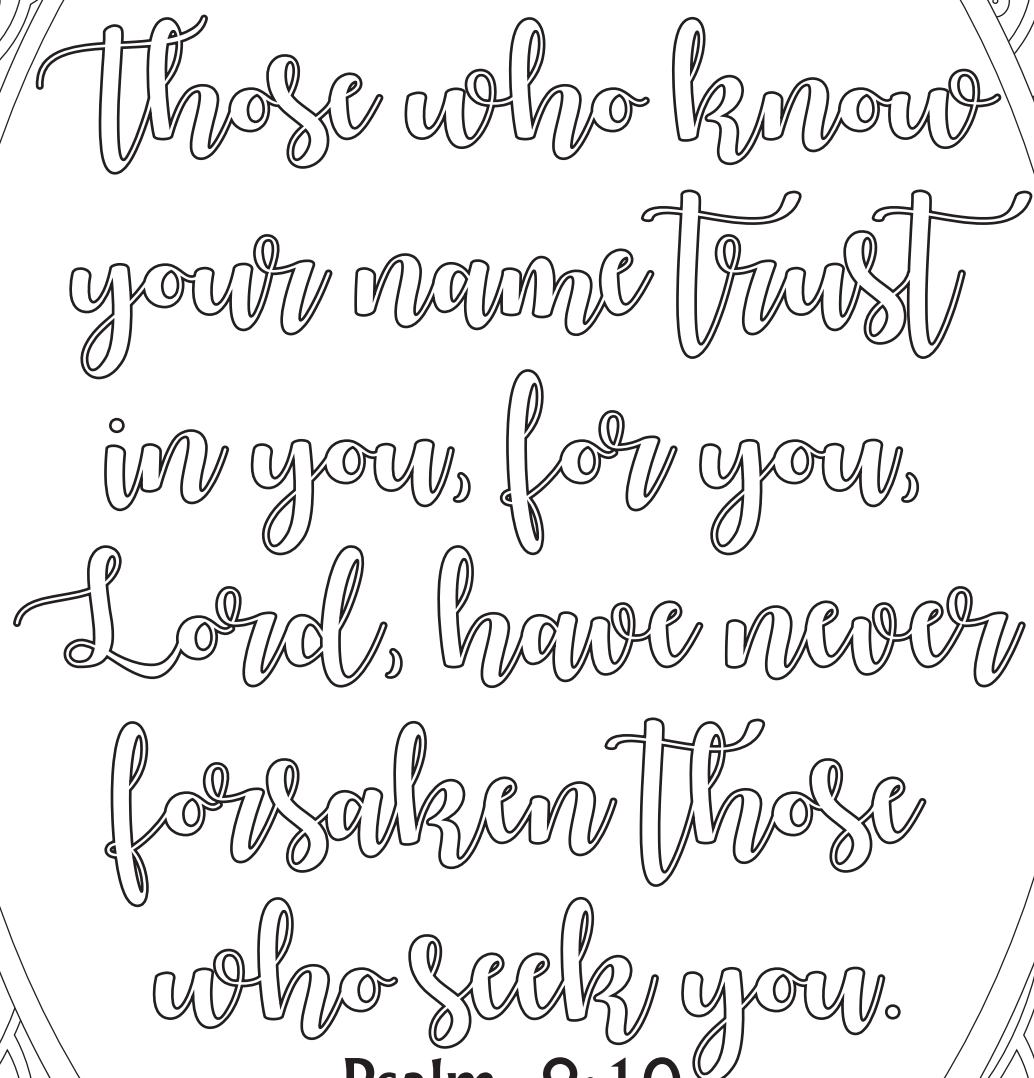 Those who know
your name trust
in you, for you,
Lord, have never
forsaken those
who seek you.
Psalm 9:10